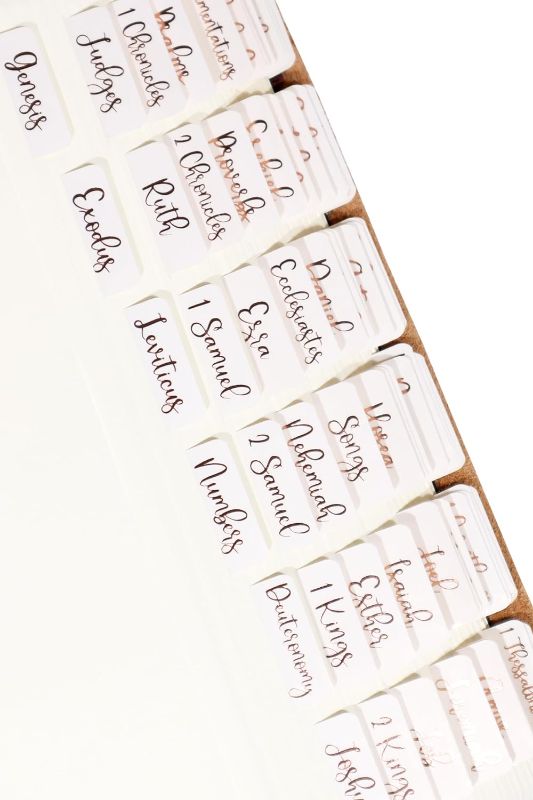 Genesis
Judges
1 Chronicles
Psalms
Exodus
Ruth
2 Chronicles
Proverbs
Ezekiel
Leviticus
1 Samuel
Ezra
Ecclesiastes
Daniel
Numbers
2 Samuel
Nehemiah
Songs
Hosea
Deuteronomy
1 Kings
Esther
Isaiah
Joel
Joshu
2 Kings
Job